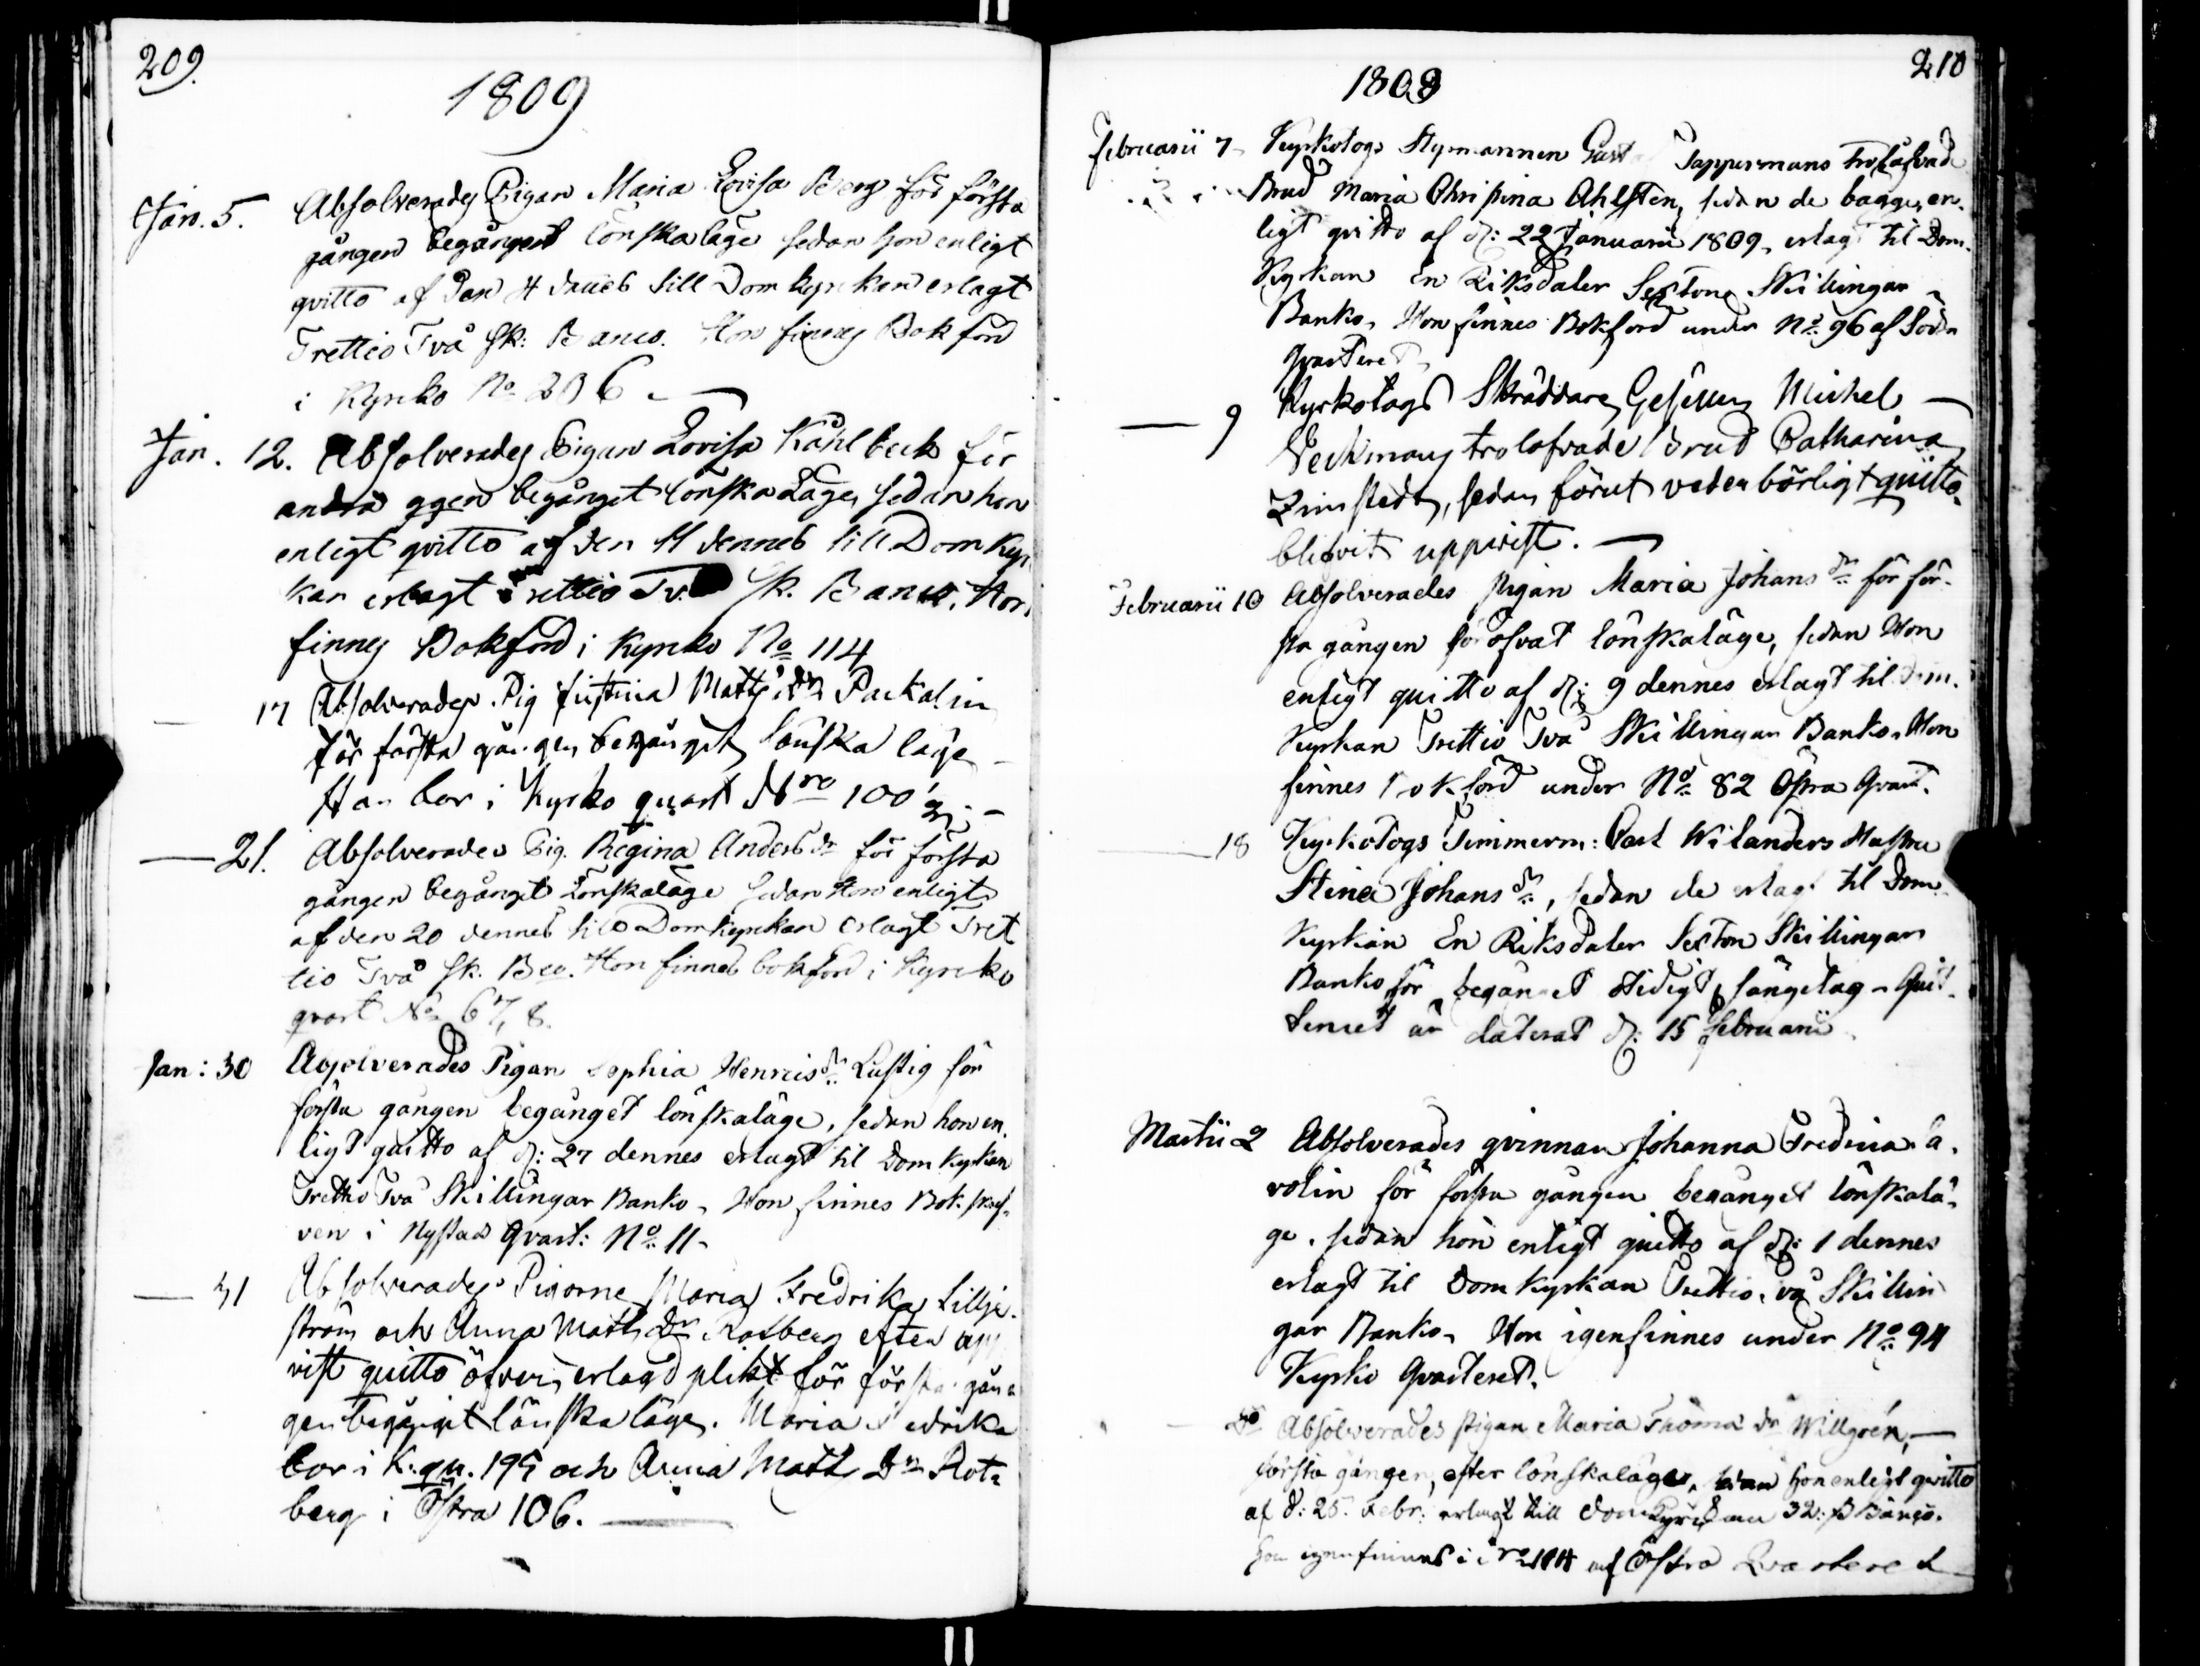 209.
1809
Jan. 5. Absolverades Pigan Maria Lovisa Berg för första
gången begånget Lönskaläge sedan hon enligt
qvitto af den 4 dennes till Domkyrkan erlagt
Trettio Två sk: Banco. Hon finnes Bokförd
i Kyrko No 236
Jan. 12. Absolverades Pigan Lovisa Kahlbeck för
andra ggen begånget Lönskaläge, sedan hon
enligt qvitto af den 11 dennes till Domkyr
kan erlagt Trettio Två Sk. Banco. Hon
finnes Bokförd i Kyrko No 114
17 Absolverades Pig Justina Matts dr Packalin
för första gången begånget lönskaläge
Hon bor i Kyrko qvart Nro 100
21. Absolverades Pig. Regina Anders dr för första
gången begånget Lönskaläge sedan Hon enligt
af den 20 dennes till Domkyrkan erlagt Tret
tio Två Sk. Bco. Hon finnes bokförd i Kyrko
qvart No 67, 8.
Jan: 30 Absolverades Pigan Sophia Henricsdr Lustig för
första gången begånget lönskaläge, sedan hon en.
ligt quitto af d: 27 dennes erlagt til Domkyrkan
Trettio Två Skillingar Banko, Hon finnes Bok skref
ven i Nystad Qvart: No 11
31 Absolverades Pigorne Maria Fredrika Lillje
ström och Anna Matts Dr Rotberg efter upp
vist quitto öfver erlagd plikt för första gån
gen begånget lönskaläge. Maria Fredrika
bor i K. qu. 195 och Anna Matts Dr Rot
berg i Östra 106.
210
1809
Februarii 7 Kyrkotogs Styrmannen Gust Tappermans Trolåfvade
Brud Maria Christina Ahlsten, sedan de bägge, en.
ligt qvitto af d: 22 Januarii 1809, erlagt til Dom.
Kyrkan En Riksdaler Sexton Skillingar
Banko, Hon finnes Bokförd under No 96 af Södra
Qvarteret
9 Kyrkotogs Skräddare Gesällen Michel
trolofvade Brud Catharina
Zimstedt, sedan förut vederbörligt quitto
blifvit uppvist.
Februarii 10 Absolverades pigan Maria Johans dr för för-
sta gången föröfvat lönskaläge, sedan Hon
enligt quitto af d: 9 dennes erlagt til Dom.
Kyrkan Trettio Två Skillingar Banko. Hon
finnes Bokförd under No 82 Östra Qvart.
18 Kyrkotogs Timmerm: Carl Wilanders Hustru
Stina Johans dr, sedan de erlagt til Dom
Kyrkan En Riksdaler Sexton Skillingar
Banko för begånget otidigt sängelag. Quit
tencet är daterat d: 15 Februarii
Martii 2 Absolverades qvinnan Johanna Fredrica Ca.
rolin för första gången begånget lönskalä-
ge, sedan hon enligt quitto af d: 1 dennes
erlagt til Domkyrkan Trettio två Skillin
gar Banko, Hon igenfinnes under No 94
Kyrko Qvarteret.
Absolverades pigan Maria Thoma dr Willgrén,
första gången, efter lönskaläge, sedan hon enligt qvitto
af d: 25. Febr: erlagt till Domkyrkan 32. s Banco.
Hon igenfinnes i No 104 af Östra Qvarteret